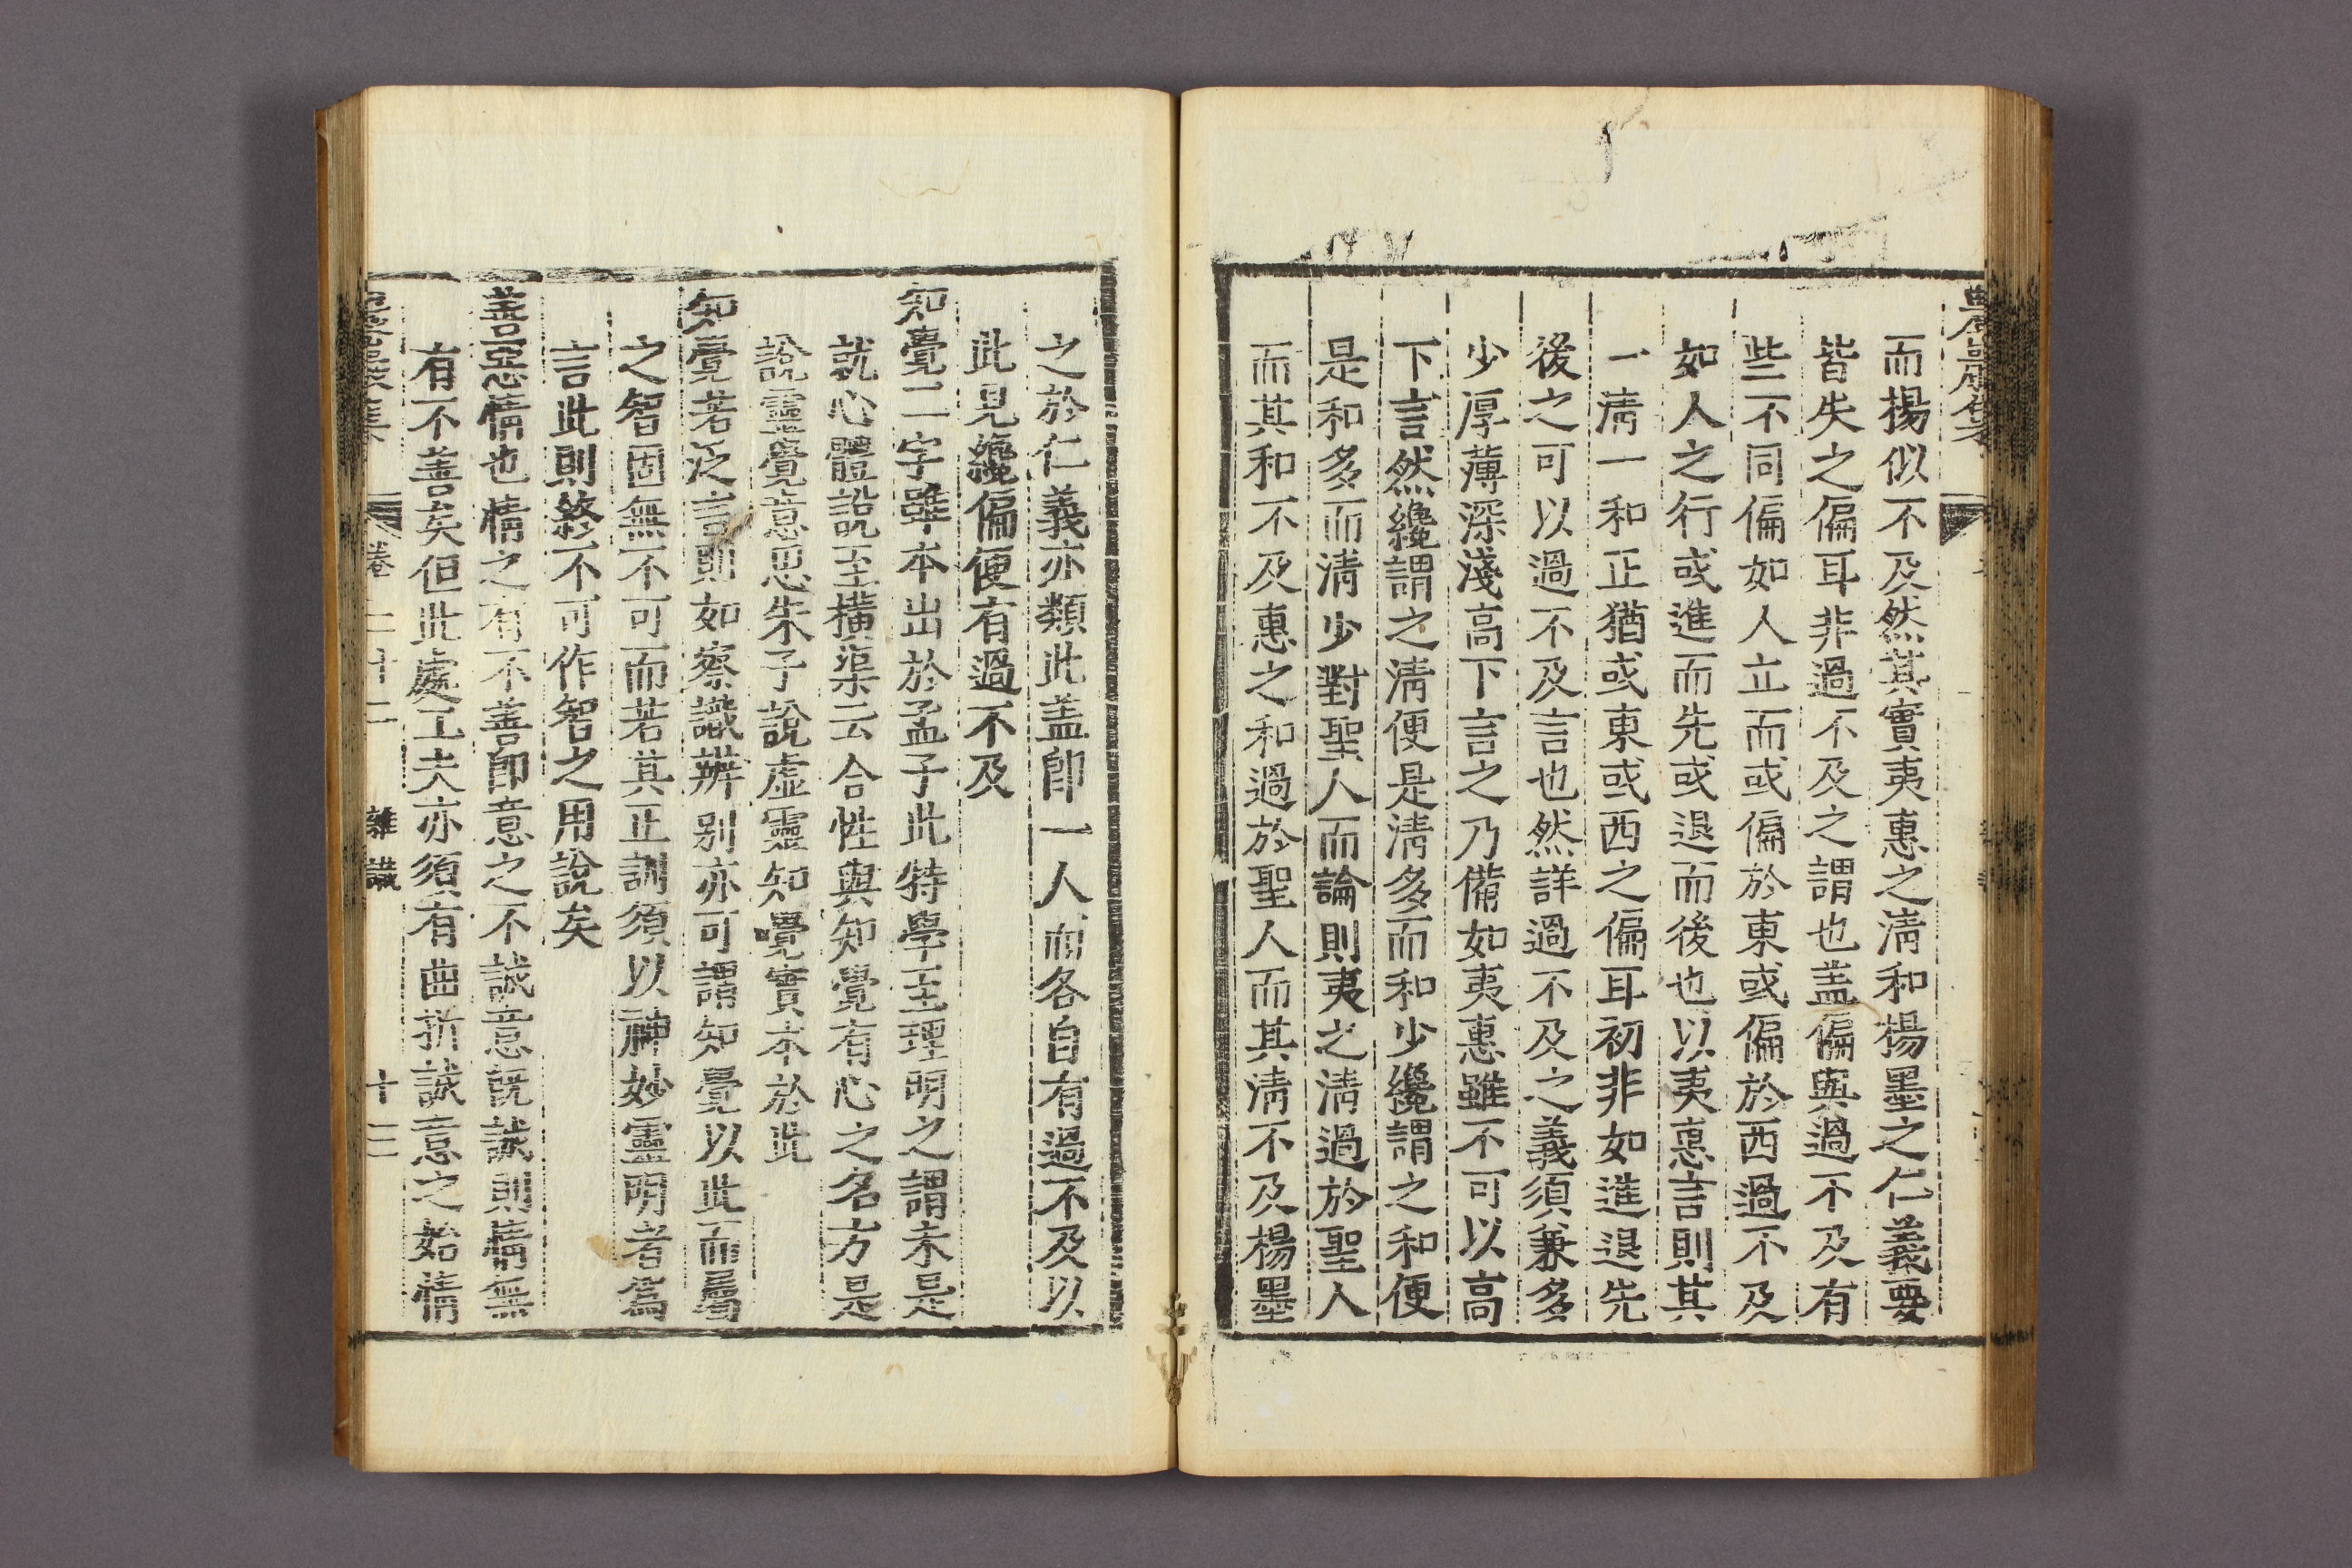 而楊似不及然其實夷惠之淸和楊墨之仁義要
皆失之偏耳非過不及之謂也盖偏與過不及有
些不同偏如人立而或偏於東或偏於西過不及
如人之行或進而先或退而後也以夷惠言則其
一淸一和正猶或東或西之偏耳初非如進退先
後之可以過不及言也然詳過不及之義須兼多
少厚薄深淺高下言之乃備如夷惠雖不可以高
下言然纔謂之淸便是淸多而和少纔謂之和便
是和多而淸少對聖人而論則夷之淸過於聖人
而其和不及惠之和過於聖人而其淸不及楊墨
之於仁義亦類此盖卽一人而各自有過不及以
此見纔偏便有過不及
知覺二字雖本出於孟子此特學至理明之謂未是
就心體說至橫渠云合性與知覺有心之名方是
說靈覺意思朱子說虛靈知覺實本於此
知覺若泛言則如察識辨別亦可謂知覺以此而屬
之智固無不可而若其正訓須以神妙靈明者爲
言此則終不可作智之用說矣
善惡情也情之有不善卽意之不誠意旣誠則情無
有不善矣但此處工夫亦須有曲折誠意之始情
卷二十二 雜識 十三